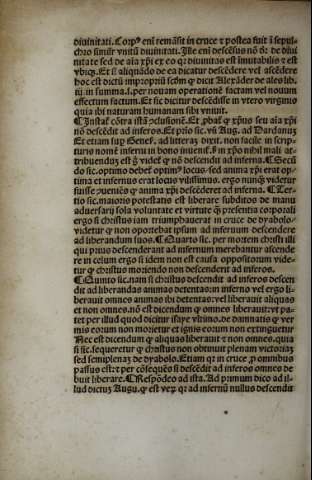 diuinitati. Corpꝰ eni remãsit in cruce ⁊ postea fuit ĩ sepul-
chro simul vnitũ diuinitati. Ille eni descẽsus nõ de diui
nitate sed de aĩa xp̃i ex eo qꝛ diuinitas est imutabilis ⁊ est
vbiqꝫ. Et si aliqñdo de ea dicatur descẽdere vel ascẽdere
hoc est dictũ impropriũ scd̃m qꝫ dicit Alexãder de ales lib.
iij. in summa. s. per nouam operationẽ factam vel nouum
effectum factum. Et sic dicitur descẽdisse in vtero virginis
quia ibi naturam humanam sibi vniuit.
¶ Instaĩ cõtra istã ꝯclusionẽ. Et ꝓbat̃ ꝙ xp̃ius seu aĩa xp̃i
nõ descẽdit ad inferos. Et prĩo sic. vñ Aug. ad Dardanũ
Et etiam sup̱ Genes. ad litterã dixit. non facile in scrip-
turis nomẽ inferni in bono inuenit̃. s in xp̃o nihil mali at-
tribuendũ est g̃ videt̃ ꝙ nõ descendit ad inferna. ¶ Secũ
do sic. optimo debet̃ optimꝰ locus. sed anima xp̃i erat op-
tima et infernus erat locus vilissimus. ergo nunqꝫ videtur
fuisse ꝯueniẽs ꝙ anima xp̃i descẽderet ad inferna. ¶ Ter-
tio sic. maioris potestatis est liberare subditos de manu
aduersarij sola voluntate et virtute qꝫ presentia corporali
ergo si christus iam triumphauerat in cruce de dyabolo
videtur ꝙ non oportebat ipsum ad infernum descendere
ad liberandum suos. ¶ Quarto sic. per mortem christi illi
qui prius descenderant ad infernum merebantur ascende
re in celum ergo si idem non est causa oppositorum vide-
tur ꝙ christus moriendo non descenderit ad inferos.
¶ Quinto sic. nam si christus descendit ad inferos descen
dit ad liberandas animas detentas in inferno vel ergo li-
berauit omnes animas ibi detentas: vel liberauit aliquas
et non omnes. nõ est dicendum ꝙ omnes liberauit: vt pa-
tet per illud quod dicitur Isaye vltimo. de damnatis ꝙ ver
mis eorum non morietur et ignis eorum non extinguetur
Nec est dicendum ꝙ aliquas liberauit ⁊ non omnes. quia
si sic. sequeretur ꝙ christus non obtinuit plenam victoriaꝫ
sed semiplenaꝫ de dyabolo. Etiam qꝛ in cruce ꝓ omnibus
passus est: ⁊ per cõsequẽs si descẽdit ad inferos omnes de
buit liberare. ¶ Respõdeo ad ista. Ad primum dico ad il-
lud dictuꝫ Augu. ꝙ est vex qꝛ ad infernũ nullus descendit